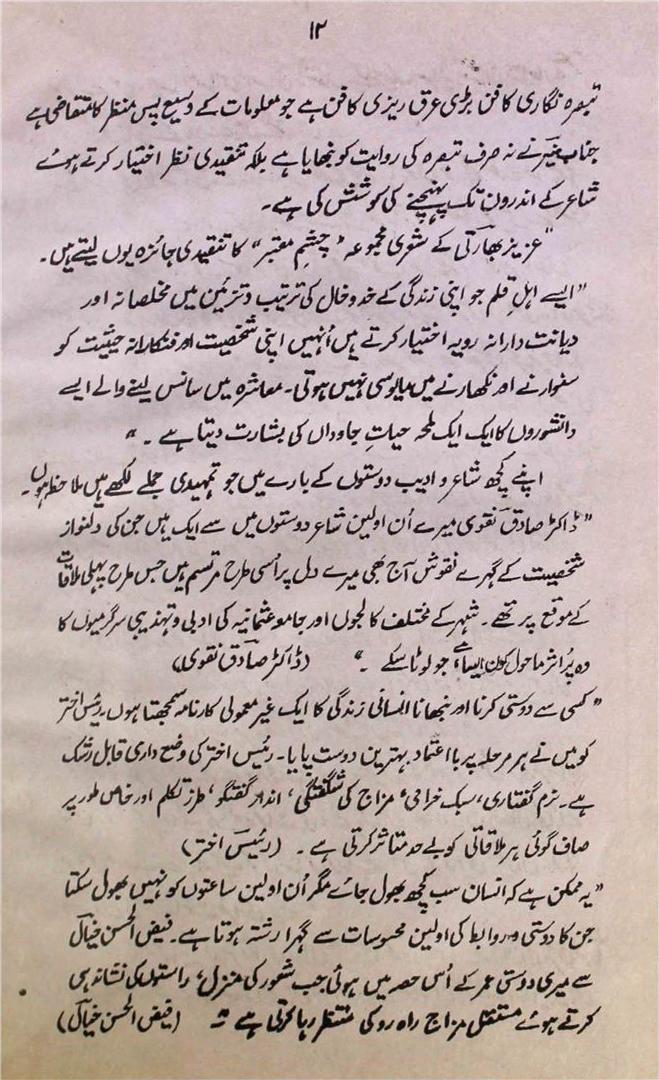 ۱۲
تبصرہ نگاری کا فن بڑی عرق ریزی کا فن ہے جو معلومات کے وسیع پس منظر کا متقاضی ہے
جناب نیّر نے نہ صرف تبصرہ کی روایت کو نبھایا ہے بلکہ تنقیدی نظر اختیار کرتے ہوئے
شاعر کے اندرون تک پہنچنے کی کوشش کی ہے۔
"عزیز بھارتی کے شعری مجموعہ "چشمِ معتبر" کا تنقیدی جائزہ یوں لیتے ہیں۔
"ایسے اہلِ قلم جو اپنی زندگی کے خدوخال کی ترتیب و تزئین میں مخلصانہ اور
دیانت دارانہ رویہ اختیار کرتے ہیں اُنہیں اپنی شخصیت اور فنکارانہ حیثیت کو
سنوارنے اور نکھارنے میں مایوسی نہیں ہوتی۔ معاشرہ میں سانس لینے والے ایسے
دانشوروں کا ایک ایک لمحہ حیاتِ جاوداں کی بشارت دیتا ہے ۔ "
اپنے کچھ شاعر و ادیب دوستوں کے بارے میں جو تمہیدی جملے لکھے ہیں ملاحظہ ہوں۔
"ڈاکٹر صادق نقوی میرے اُن اولین شاعر دوستوں میں سے ایک ہیں جن کی دلنواز
شخصیت کے گہرے نقوش آج بھی میرے دل پر اُسی طرح مرتسم ہیں جس طرح پہلی ملاقات
کے موقع پر تھے۔ شہر کے مختلف کالجوں اور جامعہ عثمانیہ کی ادبی و تہذیبی سرگرمیوں کا
وہ پُر اثر ماحول کون ایسا ہے جو لوٹا سکے ۔" (ڈاکٹر صادق نقوی)
"کسی سے دوستی کرنا اور نبھانا انسانی زندگی کا ایک غیر معمولی کارنامہ سمجھتا ہوں۔ رئیس اختر
کو میں نے ہر مرحلہ پر بااعتماد بہترین دوست پایا۔ رئیس اختر کی وضع داری قابل رشک
ہے۔ نرم گفتاری، سبک خرامی، مزاج کی شگفتگی، اندازِ گفتگو، طرزِ تکلم اور خاص طور پر
صاف گوئی ہر ملاقاتی کو بے حد متاثر کرتی ہے ۔ (رئیس اختر)
"یہ ممکن ہے کہ انسان سب کچھ بھول جائے مگر اُن اولین ساعتوں کو نہیں بھول سکتا
جن کا دوستی و روابط کی اولین محسوسات سے گہرا رشتہ ہوتا ہے۔ فیض الحسن خیالؔ
سے میری دوستی عمر کے اُس حصہ میں ہوئی جب شعور کی منزل، راستوں کی نشاندہی
کرتے ہوئے مستقل مزاج راہ رو کی منتظر رہا کرتی ہے ۔" (فیض الحسن خیالؔ)